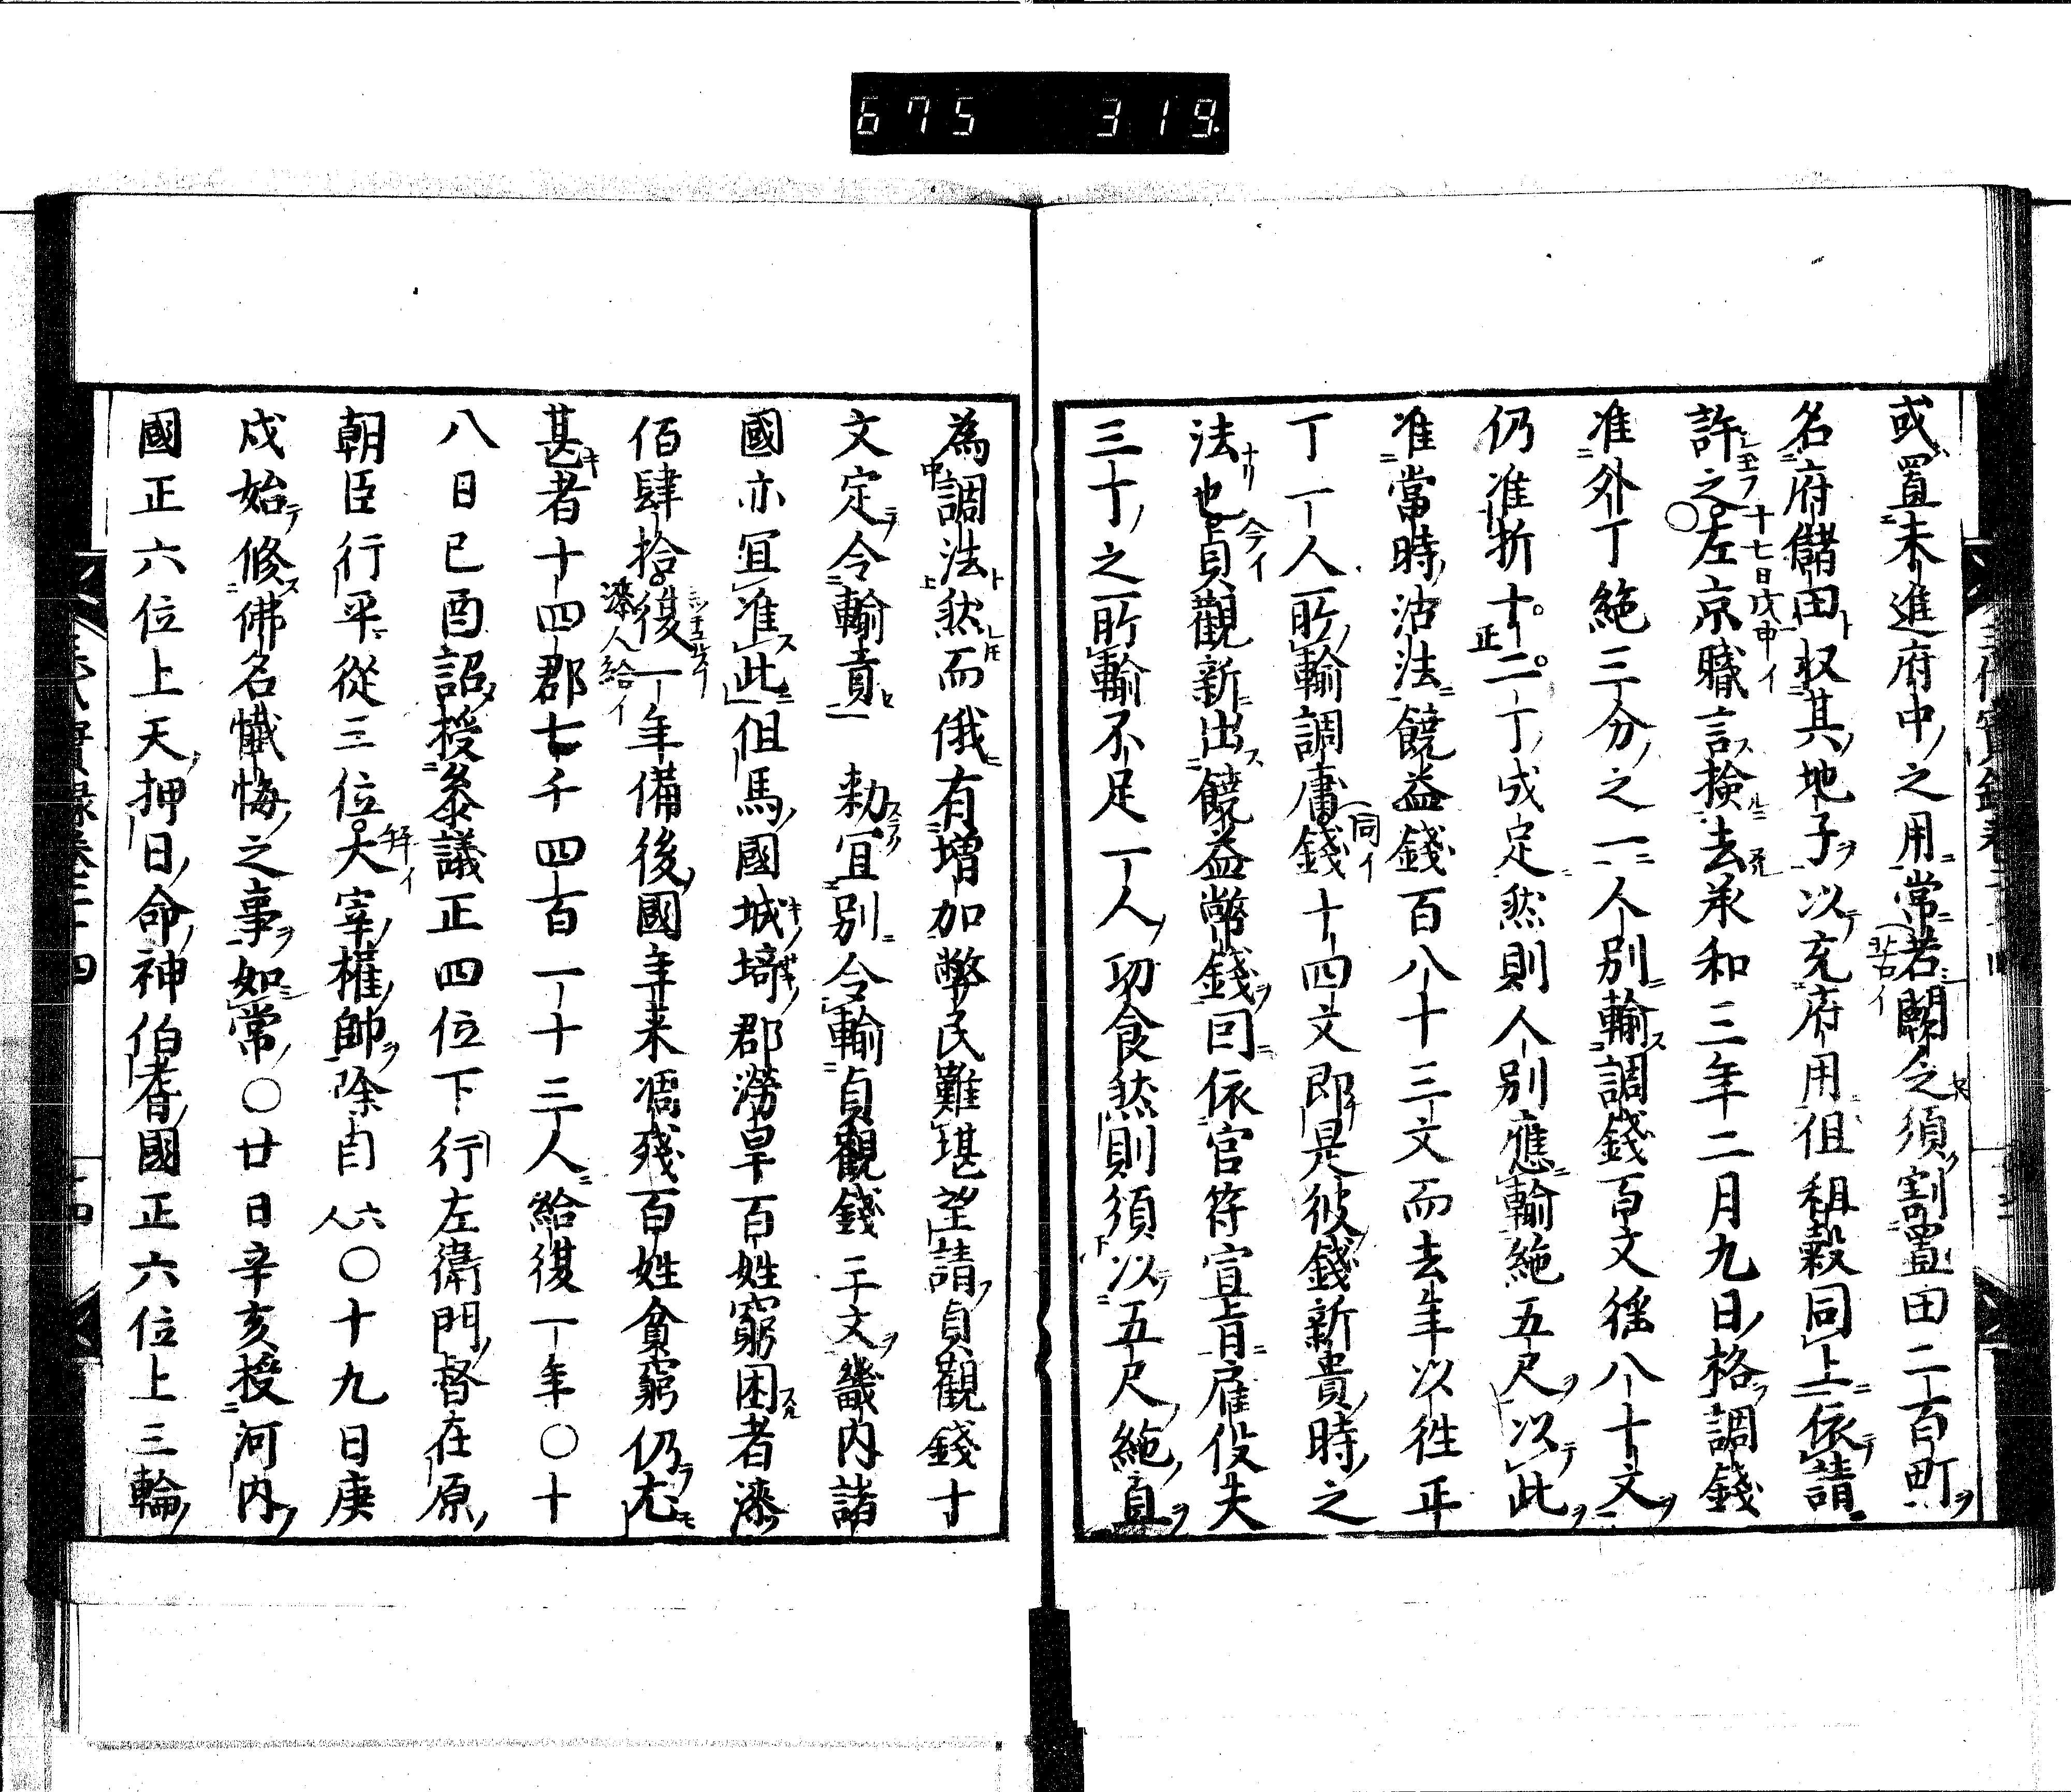 675 319
或置未進府中之用常若闕令須割置田二百町
名府儲田収其地子以充府用但租穀同上依請
許之○左京職言撿去承和三年二月九日格調錢
准外丁絁三分之一人別輸調錢百文徭八十文
仍准折十二丁成疋然則人別應輸絁五尺以此
准當時沽法饒益錢百八十三文而去年以徃平
丁一人所輸調庸錢十四文即是彼錢新貴時之
法也貞觀新出饒益幣錢囙依官符宣旨雇役夫
三十之所輸不足一人功食然則須以五尺絁直
為調法然而俄有増加弊民難堪望請貞觀錢十
文定令輸責 勅冝別令輸貞觀錢二十文畿内諸
國亦冝准此但馬國城埼郡澇旱百姓窮困者漆
佰肆拾復一年備後國年来凋殘百姓貧窮仍尤
甚者十四郡七千四百一十三人給復一年○十
八日己酉詔授叅議正四位下行左衛門督在原
朝臣行平從三位大宰權帥除目六人○十九日庚
戍始修佛名懺悔之事如常○廿日辛亥授河内
國正六位上天押日命神伯耆國正六位上三輪
十七日戊申イ
今イ
同イ
正
漆人給イ